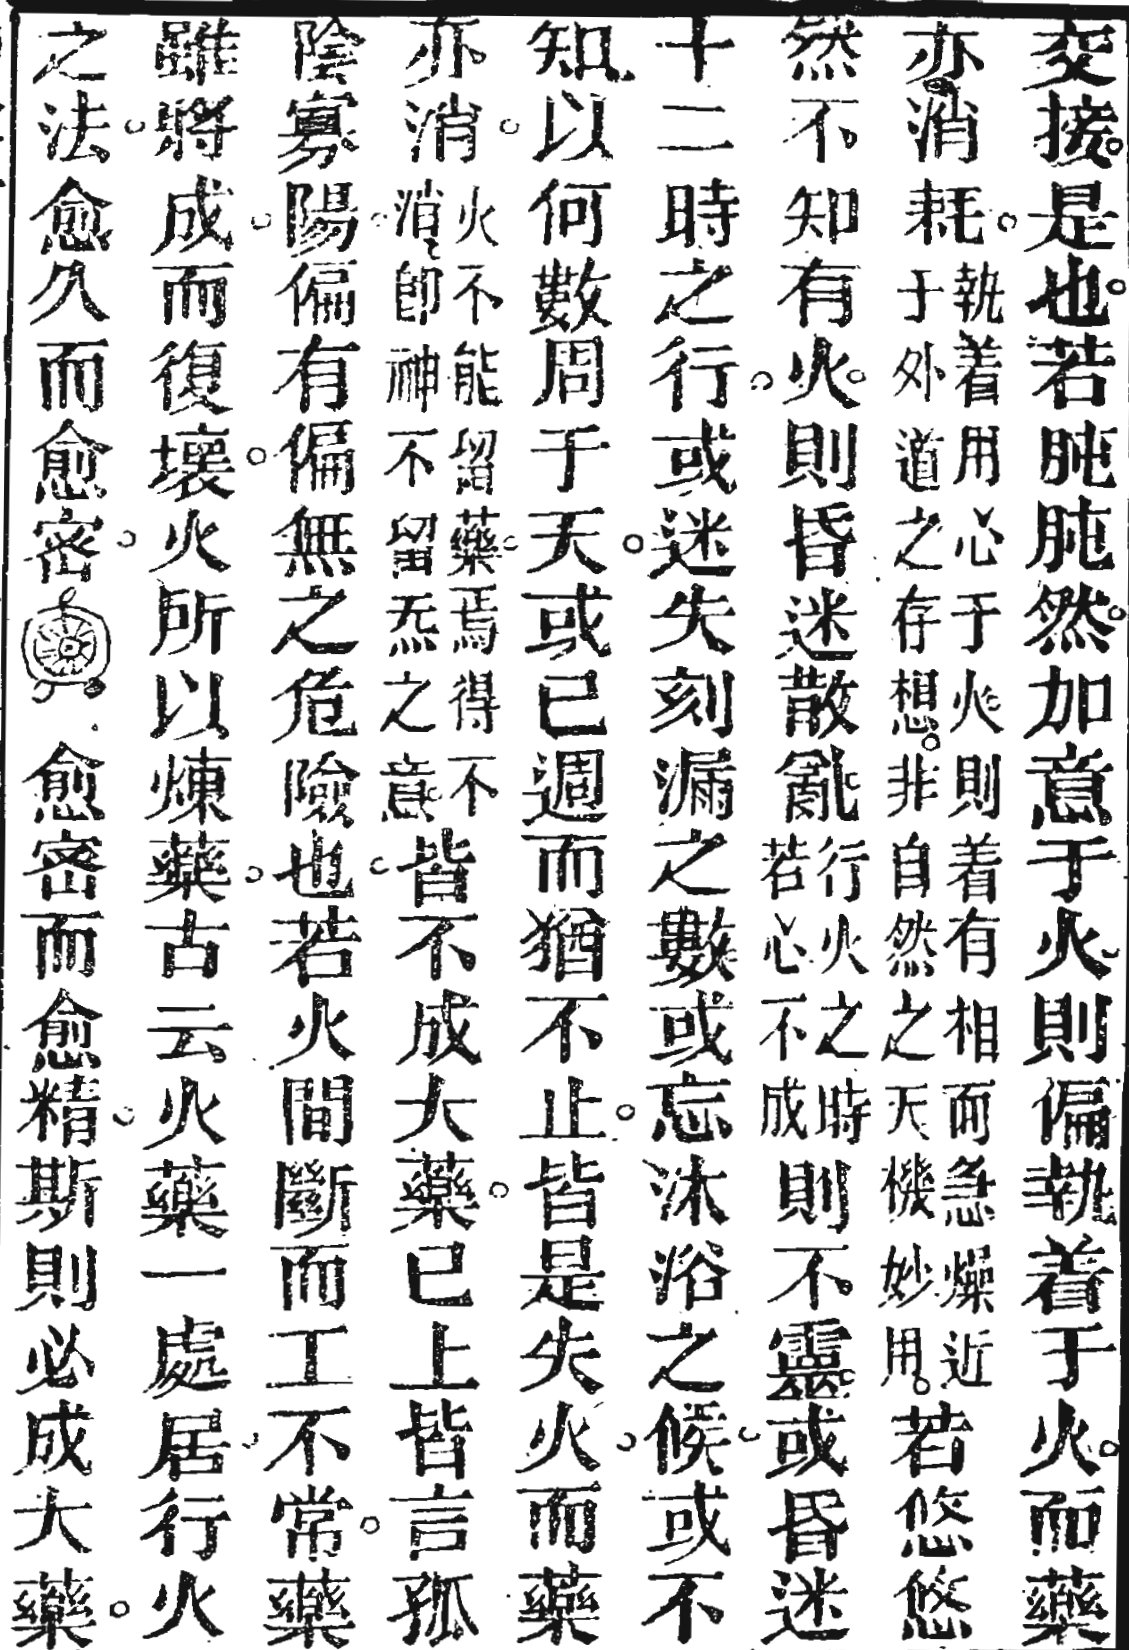 交接是也若肫肫然加意于火則偏執着于火而藥
亦消耗執着用心于火則着有相而急燥近于外道之存想非自然之天機妙用若悠悠
然不知有火則昏迷散亂行火之時若心不成則不靈或昏迷
十二時之行或迷失刻漏之數或忘沐浴之候或不
知以何數周于天或已週而猶不止皆是失火而藥
亦消火不能留藥焉得不消即神不留炁之意皆不成大藥已上皆言孤
陰寡陽偏有偏無之危險也若火間斷而工不常藥
雖將成而復壞火所以煉藥古云火藥一處居行火
之法愈久而愈密愈密而愈精斯則必成大藥